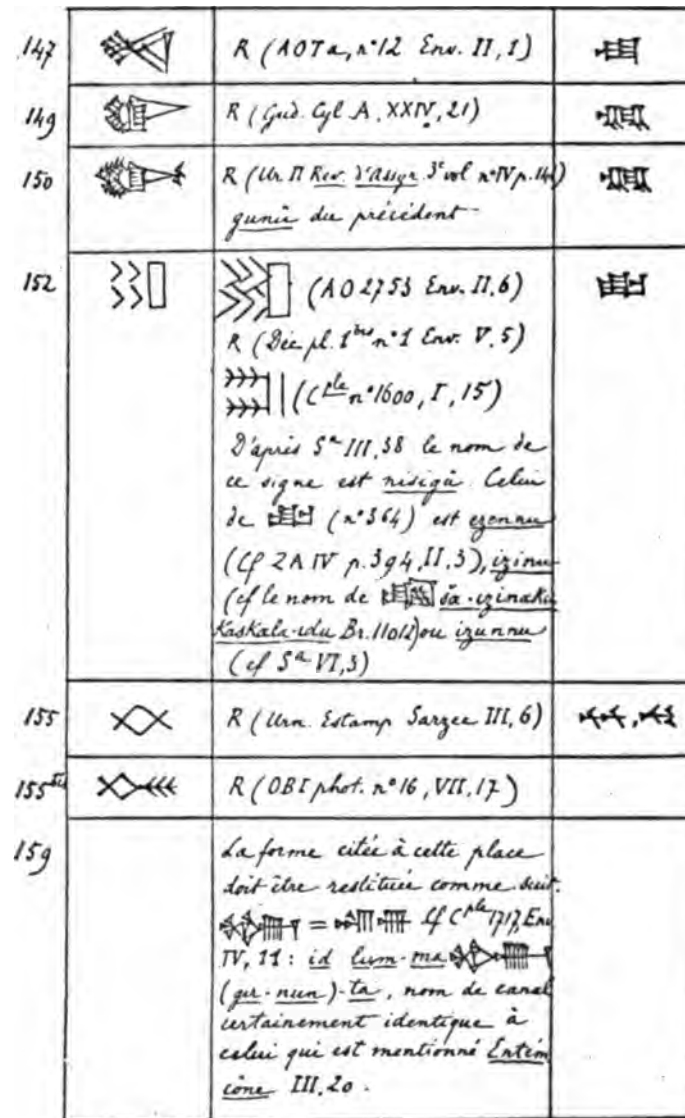 147 R (AOTa, n°12 Env. II, 1)
149 R (Gud. Cyl. A, XXIV, 21)
150 R (Ur. Π Rev. d'Assyr. 3e vol n°IV p.
gunû du précédent
152 (AO 2753 Env. II, 6)
R (Déc pl. 1bis n°1 Env. V, 5)
(Cple n°1600, I, 15)
D'après Sa III, 38 le nom de
ce signe est nisigû. Celui
de (n°364) est ezennu
(Cf ZA IV p. 394, II, 3), izinu
(cf le nom de ša-izinaku
Kaskala-idu Br. 11012) ou izunnu
(cf Sa VI, 3)
155 R (Urn. Estamp Sarzec III, 6)
155bis R (OBI phot. n°16, VII, 17)
159 La forme citée à cette place
doit être restituée comme suit.
= Cf Cple 1717, Env
IV, 11 : id lum-ma
(gir-nun)-ta, nom de canal
certainement identique à
celui qui est mentionné Entém
cône III, 20.